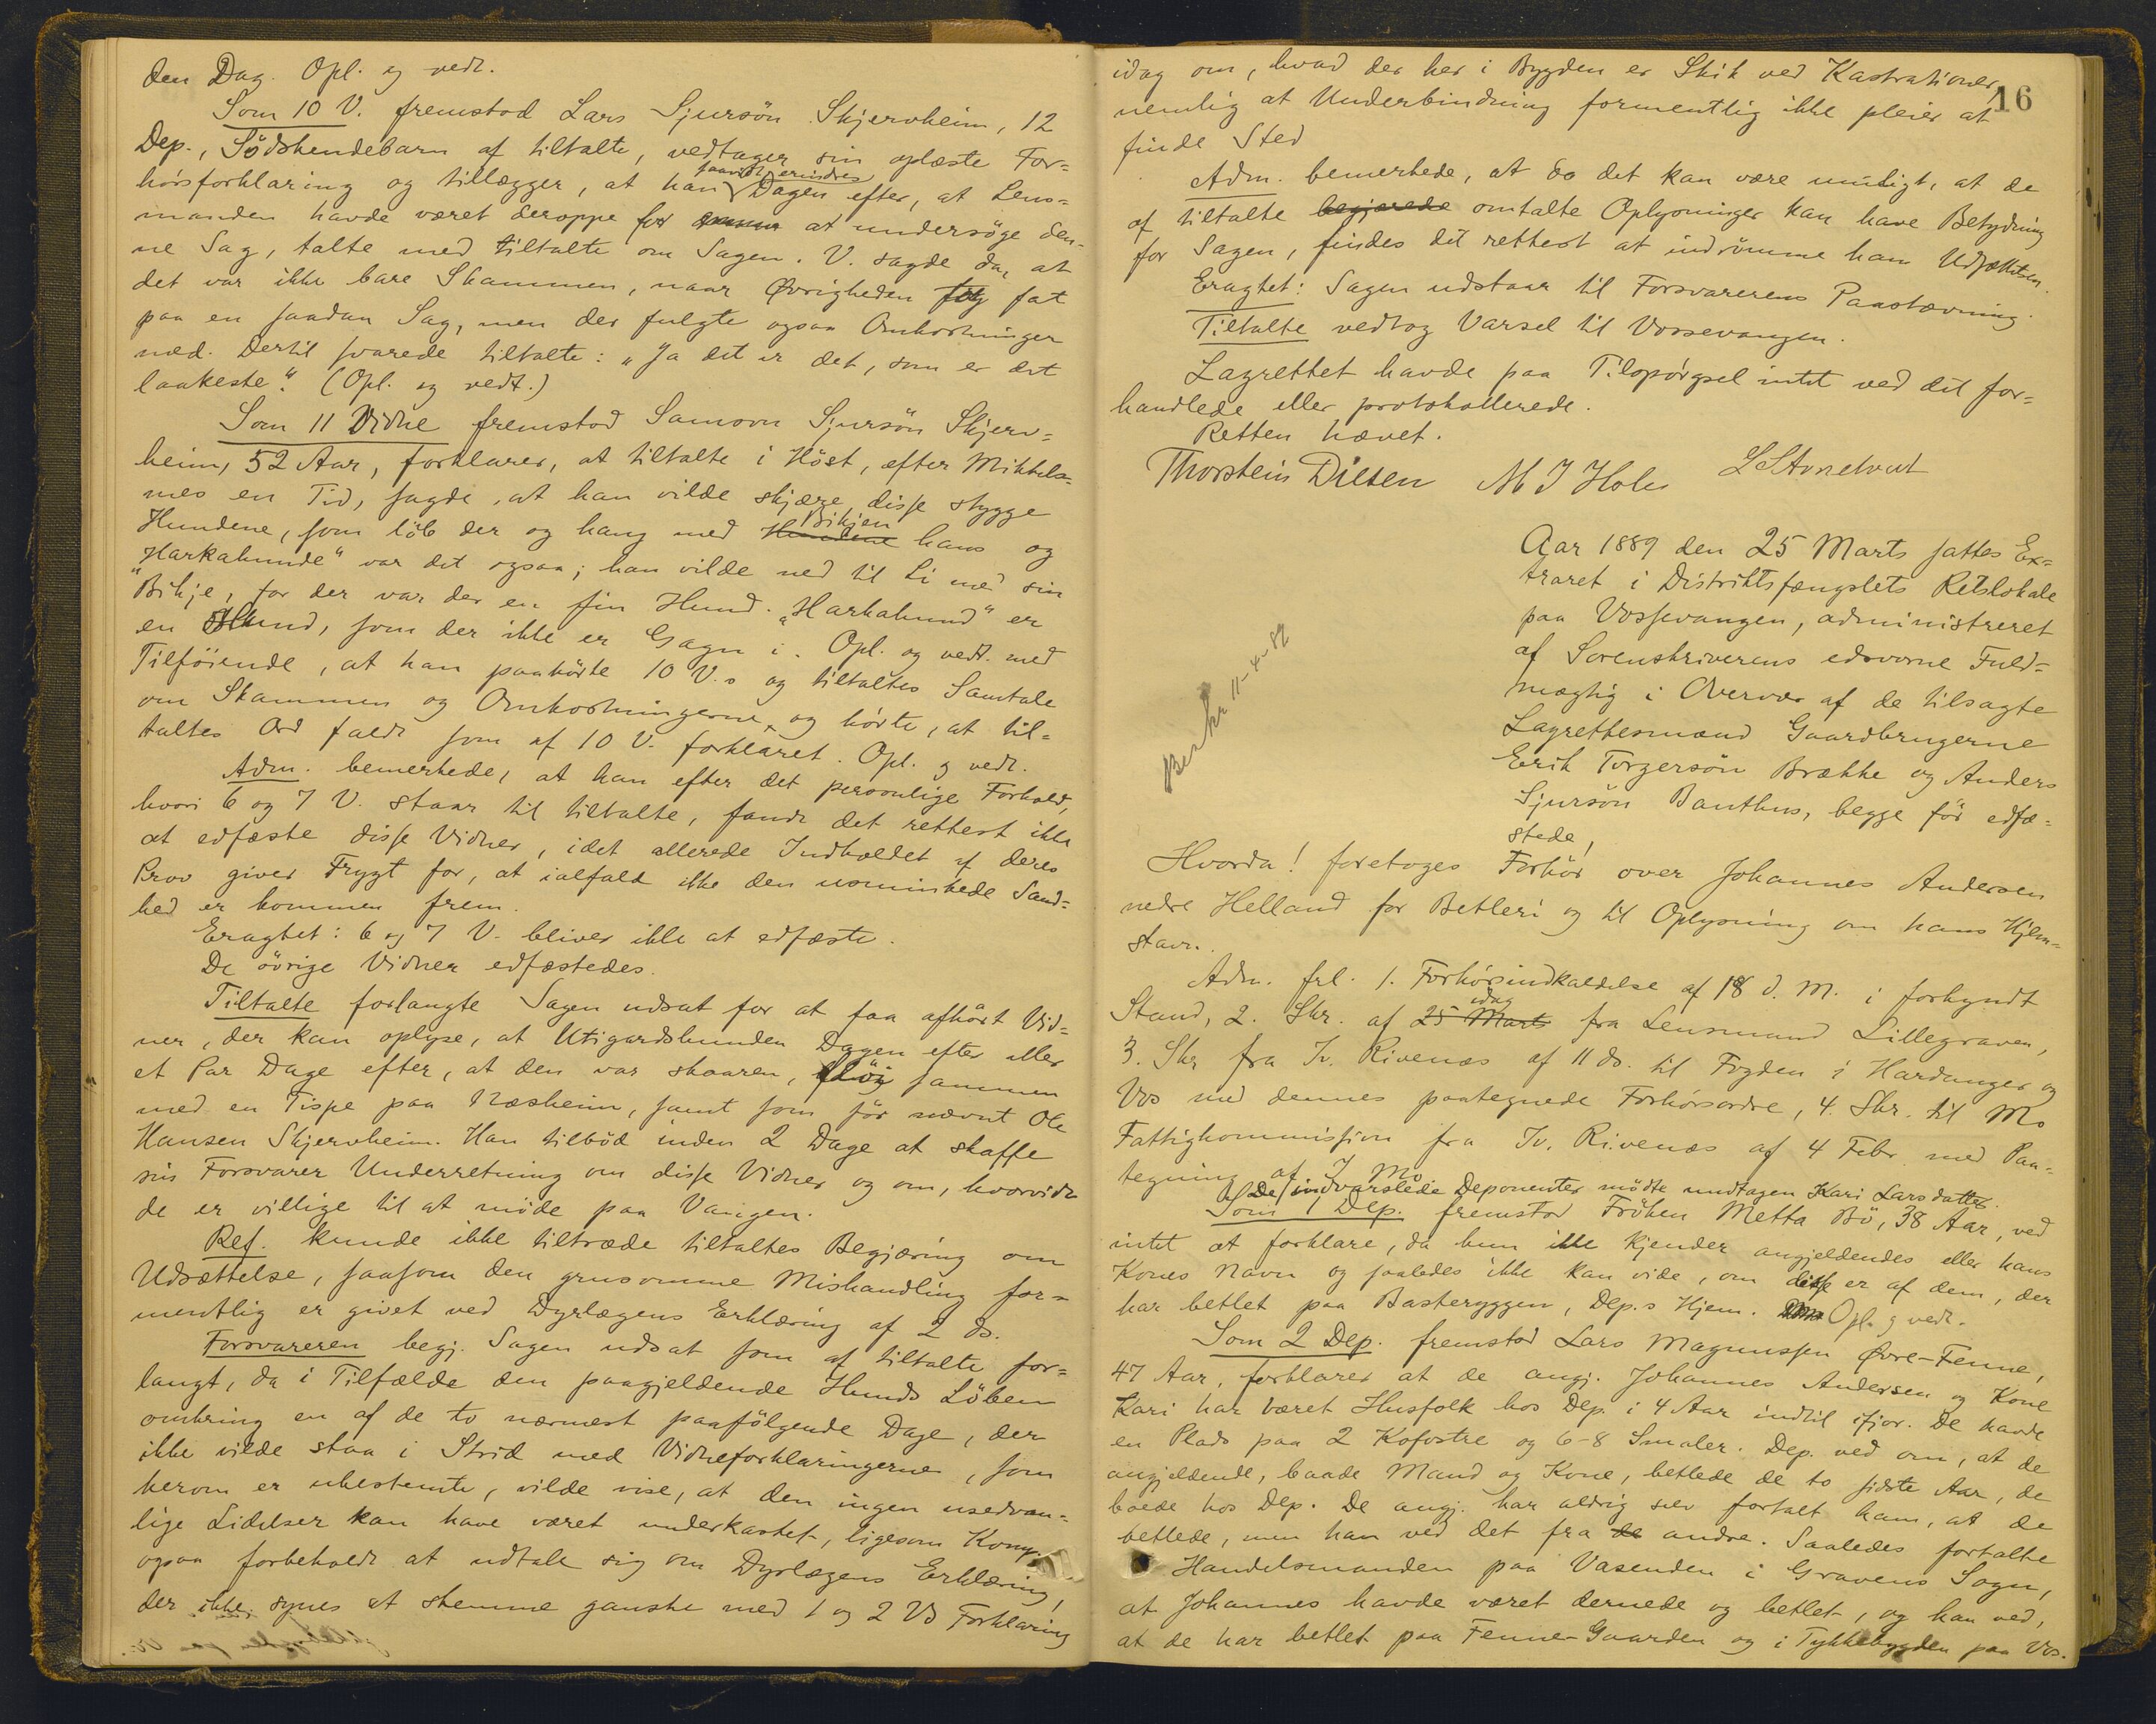 den Dag. Opl. og vedt.
Som 10 V. fremstod Lars Sjursön Skjervheim, 12
Dep., Södskendebarn af tiltalte, vedtager sin oplæste For=
hörsforklaring og tillægger, at han saavidt erindres Dagen efter, at Lens=
manden havde været deroppe for at undersöge den=
ne Sag, talte med tiltalte om Sagen. V. sagde da, at
det var ikke bare Skammen, naar Øvrigheden fik fat
paa en saadan Sag, men der fulgte ogsaa Omkostninger
med. Dertil svarede tiltalte: „Ja det er det, som er det
laakeste." (Opl. og vedt.)
Som 11 Vidne fremstod Samson Sjursön Skjerv=
heim, 52 Aar, forklarer, at tiltalte i Höst, efter Mikkels=
mes en Tid, sagde, at han vilde skjære disse stygge
Hundene, som löb der og hang med Hundene Bikjen hans og
„Harkahunde" var det ogsaa; han vilde ned til Li med sin
Bikje, for der var der en fin Hund. „Harkahund" er
en Hund, som der ikke er Gagn i. Opl. og vedt. med
Tilföiende, at han paahörte 10 V.s og tiltaltes Samtale
om Skammen og Omkostningerne og hörte, at til=
taltes Ord faldt som af 10 V. forklaret. Opl. og vedt.
Adm. bemerkede, at han efter det personlige Forhold,
hvori 6 og 7 V. staar til tiltalte, fandt det rettest ikke
at edfæste disse Vidner, idet allerede Indholdet af deres
Prov giver Frygt for, at ialfald ikke den usminkede Sand=
hed er kommen frem.
Eragtet: 6 og 7 V. bliver ikke at edfæste.
De övrige Vidner edfæstedes.
Tiltalte forlangte Sagen udsat for at faa afhört Vid=
ner, der kan oplyse, at Utigardshunden Dagen efter eller
et Par Dage efter, at den var skaaren, flöi sammen
med en Tispe paa Næsheim, samt som för nævnt Ole
Hansen Skjervheim. Han tilböd inden 2 Dage at skaffe
sin Forsvarer Underretning om disse Vidner og om, hvorvidt
de er villige til at möde paa Vangen.
Ref. kunde ikke tiltræde tiltaltes Begjæring om
Udsættelse, saasom den grusomme Mishandling for=
mentlig er givet ved Dyrlægens Erklæring af 2 ds.
Forsvareren begj. Sagen udsat som af tiltalte for=
langt, da i Tilfælde den paagjeldende Hunds Löben
omkring en af de to nærmest paafölgende Dage, der
ikke vilde staa i Strid med Vidneforklaringerne, som
herom er ubestemte, vilde vise, at den ingen usedvan=
lige Lidelser kan have været underkastet, ligesom Komp.
ogsaa forbeholdt at udtale sig om Dyrlægens Erklæring,
der ikke synes at stemme ganske med 1 og 2 Vs Forklaring
16
idag om, hvad der her i Bygden er Skik ved Kastrationer,
nemlig at Underbindning formentlig ikke pleier at
finde Sted
Adm. bemerkede, at da det kan være muligt, at de
af tiltalte begjærede omtalte Oplysninger kan have Betydning
for Sagen, findes det rettest at indrömme ham Udsættelsen.
Eragtet: Sagen udstaar til Forsvarerens Paastævning.
Tiltalte vedtog Varsel til Vossevangen.
Lagrettet havde paa Tilspörgsel intet ved det for=
handlede eller protokollerede.
Retten hævet.
Thorstein Dilsen M J Hole
Beskr 11-4-89
Aar 1889 den 25 Marts sattes Ex=
traret i Distriktsfængslets Retslokale
paa Vossevangen, administreret
af Sorenskriverens edsvorne Fuld=
mægtig i Overvær af de tilsagte
Lagrettesmænd Gaardbrugerne
Erik Torgersön Brække og Anders
Sjursön Bauthus, begge för edfæ=
stede,
Hvorda! foretoges Forhör over Johannes Andersen
nedre Helland for Betleri og til Oplysning om hans Hjem=
stavn.
Adm. frl. 1. Forhörsindkaldelse af 18 d. M. i forkyndt
Stand, 2. Skr. af 25 Marts idag fra Lensmand Lillegraven,
3. Skr fra Iv. Rivenæs af 11 ds. til Fogden i Hardanger og
Vos med dennes paategnede Forhörsordre, 4. Skr. til Mo
Fattigkommission fra Iv. Rivenæs af 4 Febr. med Paa=
tegning af J Mo
De indvarslede Deponenter mödte undtagen Kari Larsdatter.
Som 1 Dep. fremstod Fröken Metta Bö, 38 Aar, ved
intet at forklare, da hun ikke kjender angjeldendes eller hans
Kones Navn og saaledes ikke kan vide, om disse er af dem, der
har betlet paa Basteryggen, Dep.s Hjem. Opl. og vedt.
Som 2 Dep. fremstod Lars Magnussen Øvre-Fenne,
47 Aar, forklarer at de angj. Johannes Andersen og Kone
Kari har været Husfolk hos Dep. i 4 Aar indtil ifjor. De havde
en Plads paa 2 Kofostre og 6-8 Smaler. Dep. ved om, at de
angjeldende, baade Mand og Kone, betlede de to sidste Aar, de
boede hos Dep. De angj. har aldrig selv fortalt ham, at de
betlede, men han ved det fra de andre. Saaledes fortalte
Handelsmanden paa Vasenden i Gravens Sogn,
at Johannes havde været dernede og betlet, og han ved,
at de har betlet paa Fenne-Gaarden og i Tykkebygden paa Vos.